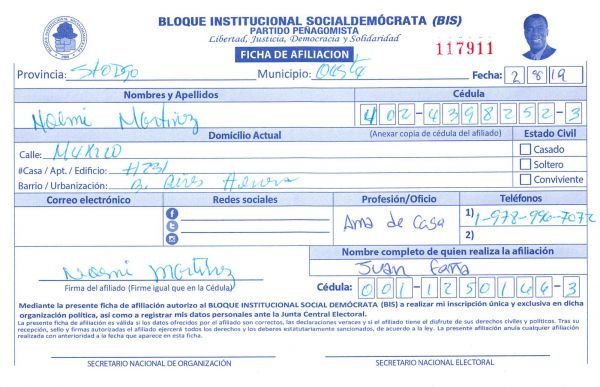 BLOQUE INSTITUCIONAL SOCIALDEMÓCRATA (BIS)
PARTIDO PEÑAGOMISTA
Libertad, Justicia, Democracia y Solidaridad
FICHA DE AFILIACION
117911
Provincia: Stodgo Municipio: Oeste Fecha: 2 8 19
Nombres y Apellidos Cédula
Noemi Martinez 402-4398252-3
Domicilio Actual (Anexar copia de cédula del afiliado) Estado Civil
Calle: Casado
#Casa / Apt. / Edificio: #231 Soltero
Barrio / Urbanización: B. Aires Conviviente
Correo electrónico Redes sociales Profesión/Oficio Teléfonos
Ama de Casa 1) 1-978-996-7072
2)
Nombre completo de quien realiza la afiliación
Noemi Martinez Juan
Firma del afiliado (Firme igual que en la Cédula) Cédula: 001-1250144-3
Mediante la presente ficha de afiliación autorizo al BLOQUE INSTITUCIONAL SOCIAL DEMÓCRATA (BIS) a realizar mi inscripción única y exclusiva en dicha
organización política, así como a registrar mis datos personales ante la Junta Central Electoral.
La presente ficha de afiliación es válida si los datos ofrecidos por el afiliado son correctos, las declaraciones veraces y si el titular tiene el disfrute de sus derechos civiles y políticos. Tras su
recepción, sello y firmas autorizadas el afiliado ejercerá todos los derechos y los deberes estatutariamente sancionados, de acuerdo a la ley. La presente afiliación anula cualquier afiliación
realizada con anterioridad a la fecha que aparece en esta ficha.
SECRETARIO NACIONAL DE ORGANIZACIÓN SECRETARIO NACIONAL ELECTORAL